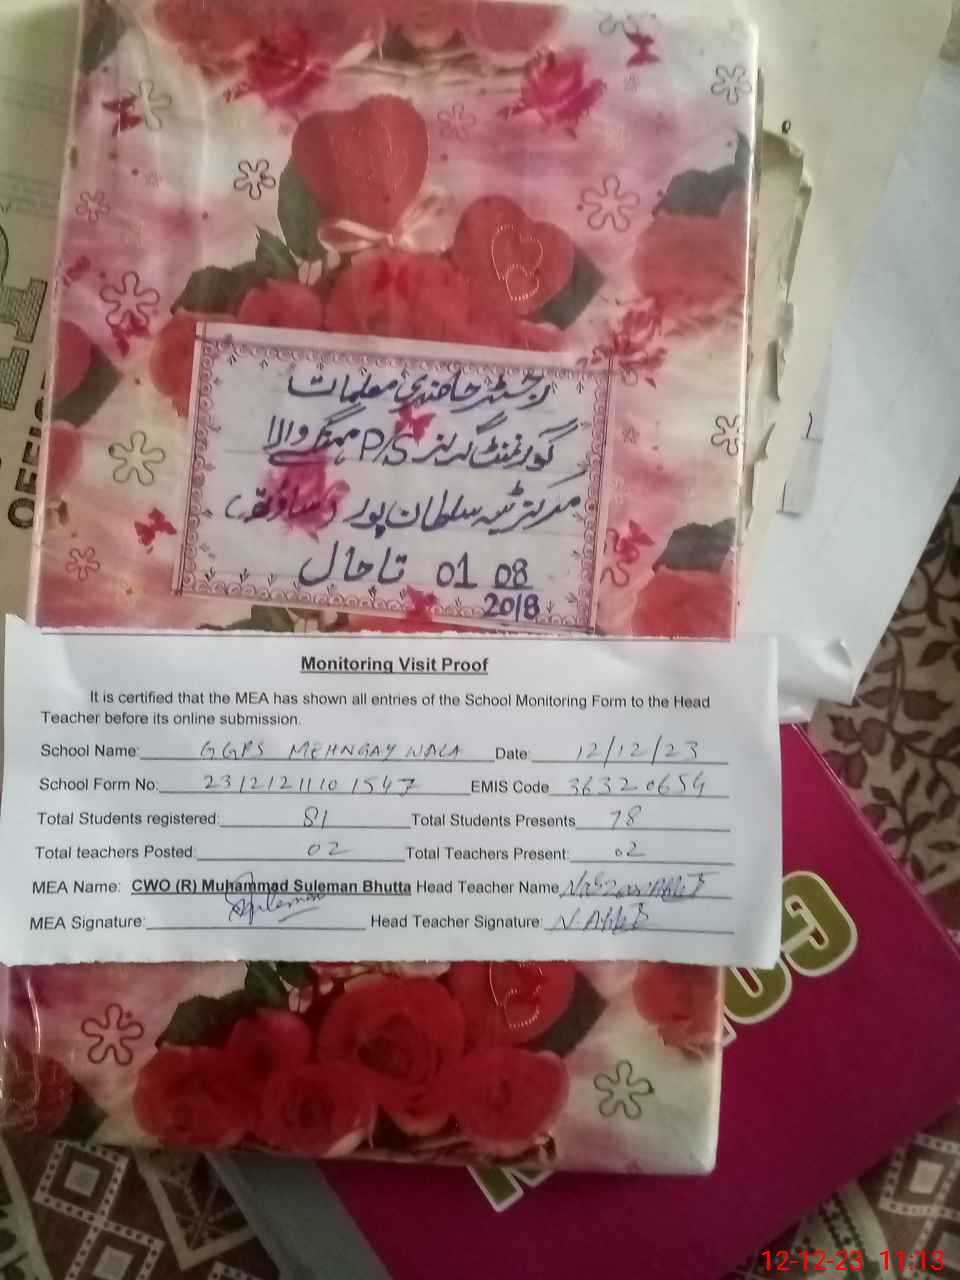 رجسٹر حاضری معلمات
گورنمنٹ گرلز P/S مہنگے والا
مرکز شہ سلطان پور (ساؤتھ)
01 08 2018 تا حال
Monitoring Visit Proof
It is certified that the MEA has shown all entries of the School Monitoring Form to the Head
Teacher before its online submission.
School Name: GGPS MEHNGAY WALA Date: 12/12/23
School Form No: 23121211101547 EMIS Code 36320654
Total Students registered: 81 Total Students Presents 78
Total teachers Posted: 02 Total Teachers Present: 02
MEA Name: CWO (R) Muhammad Suleman Bhutta Head Teacher Name
MEA Signature: Suleman Head Teacher Signature:
OFFIC
12-12-23 11:13